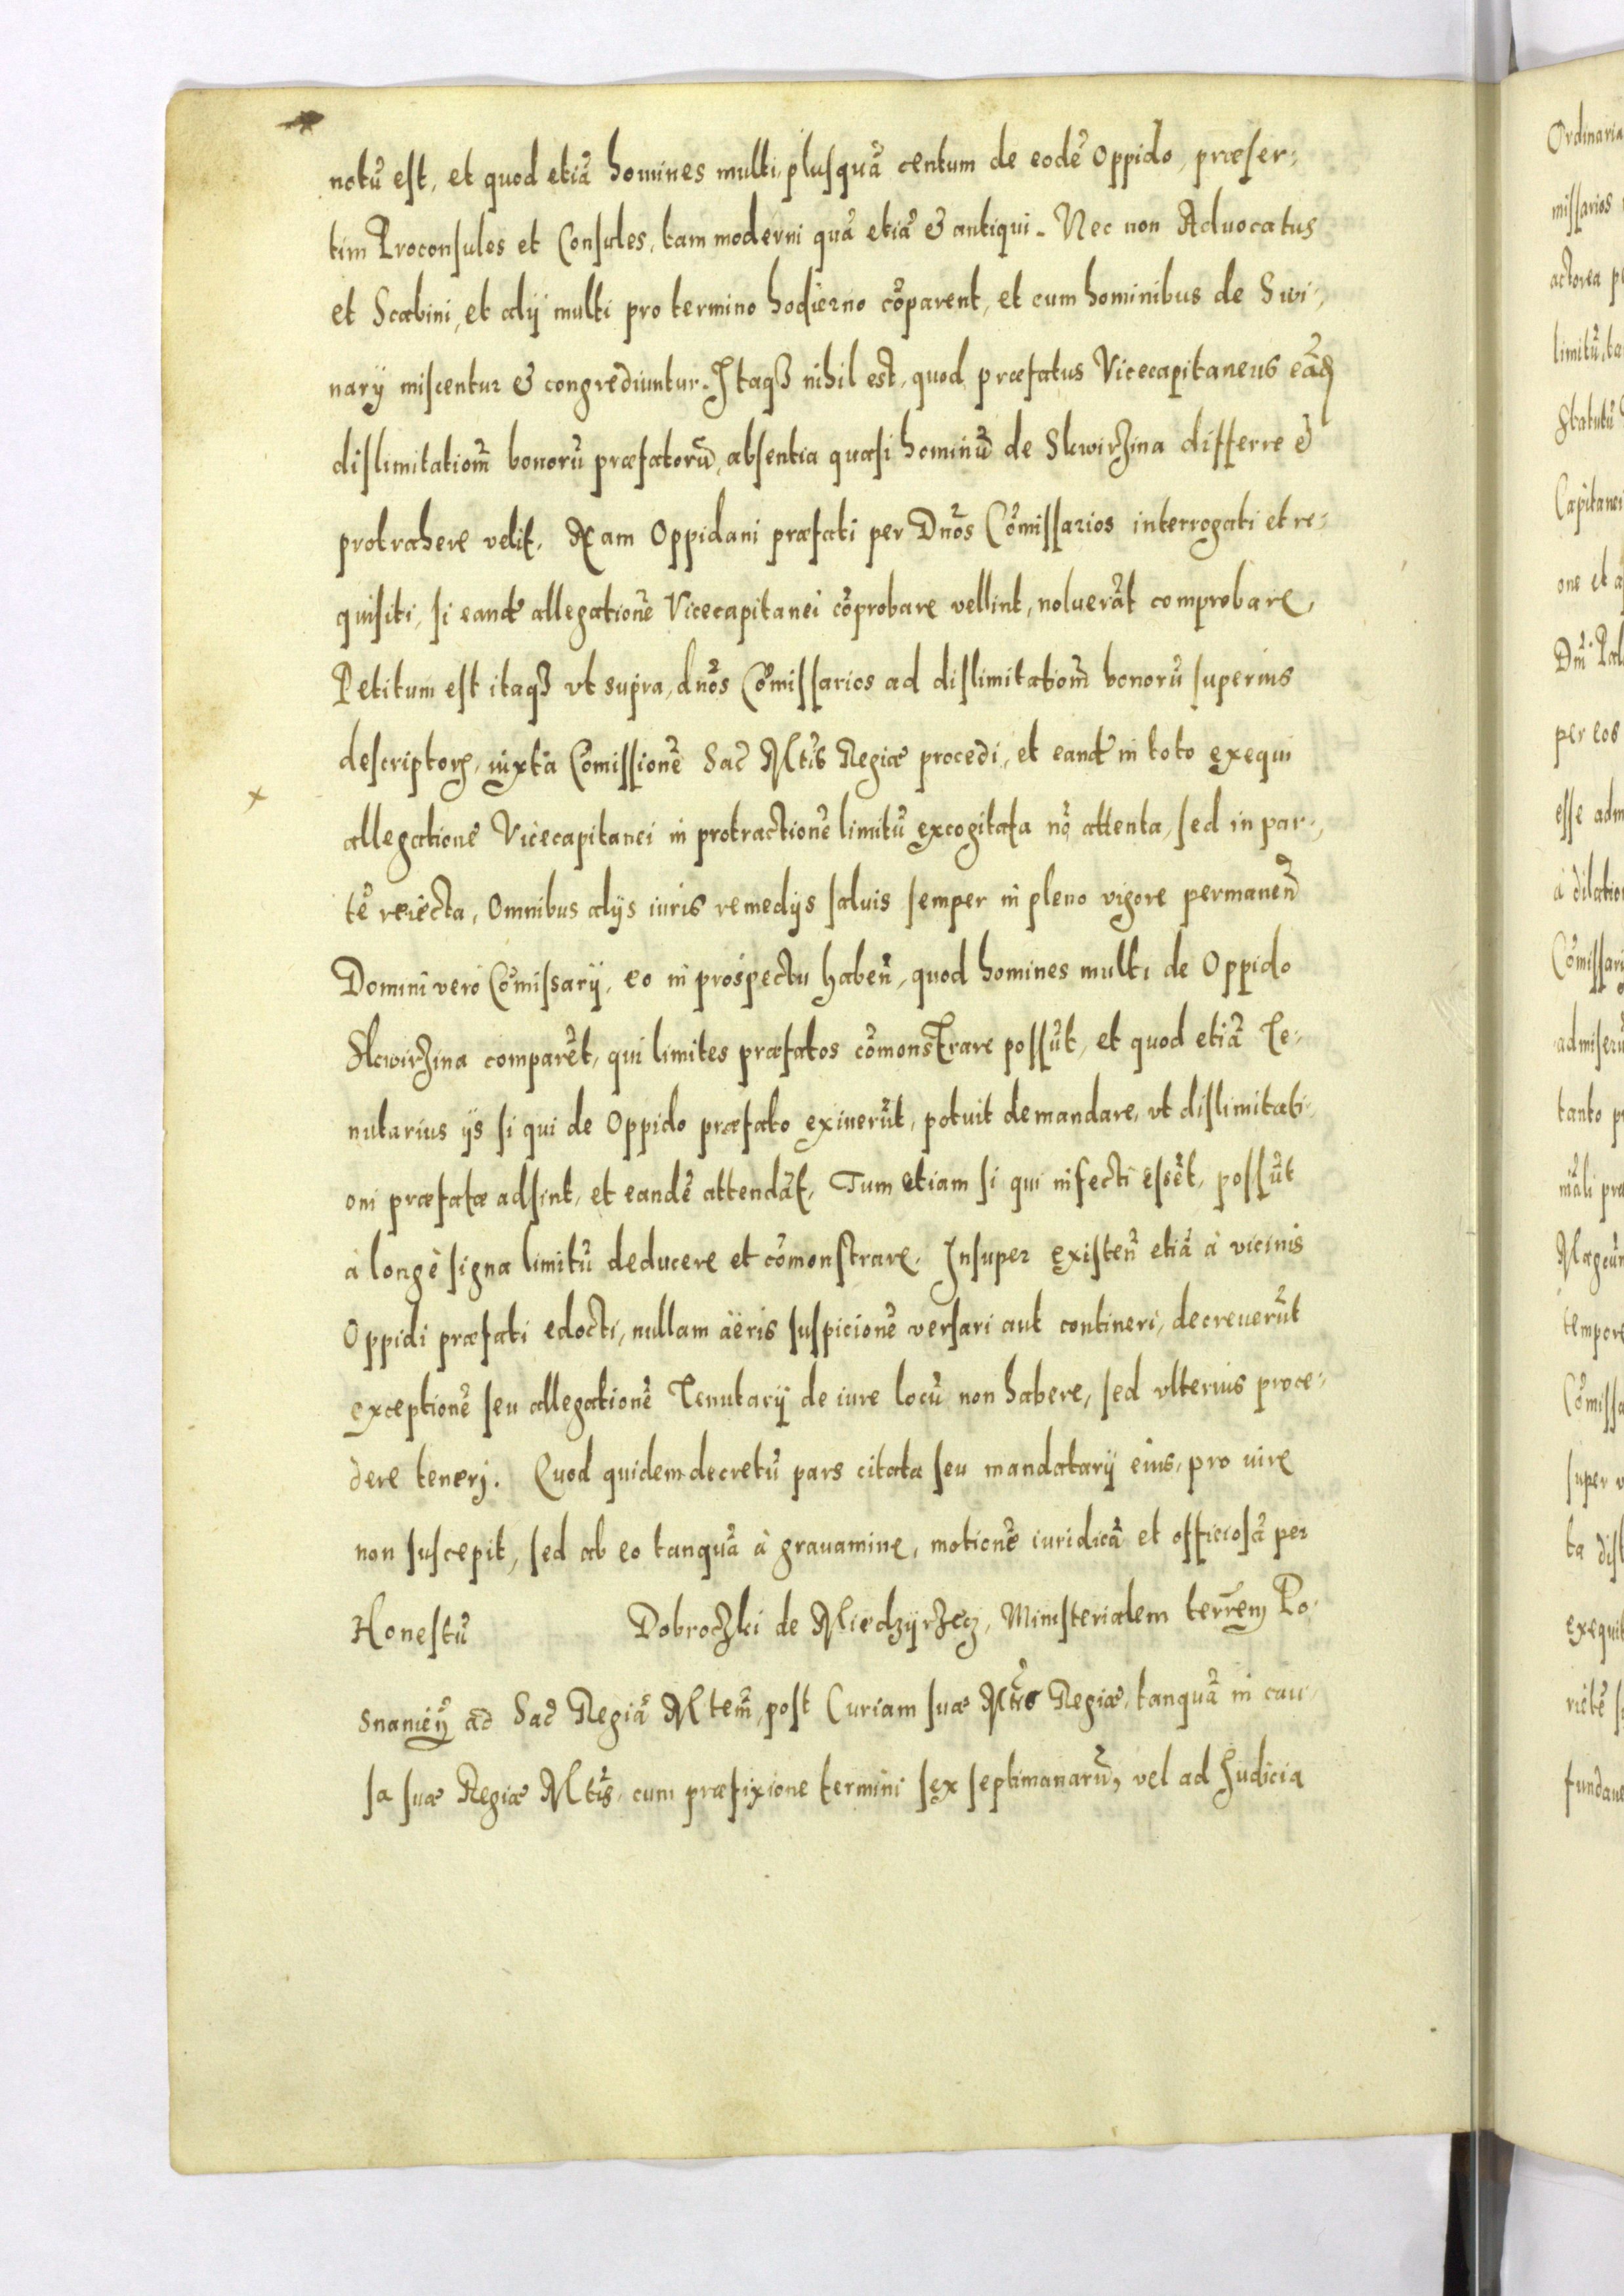 notũ est, et quod etiã homines multi, plusquã centum de eodẽ Oppido, præser-
tim Proconsules et Consules, tam moderni quã etiã & antiqui. Nec non Aduocatus
et Scabini, et alÿ multi pro termino hodierno cõparent, et cum hominibus de Swi-
narÿ miscentur & congrediuntur. Itaqꝫ nihil est, quod præfatus Vicecapitaneus eãd
dislimitationẽ bonorũ præfatorũ, absentia quasi hominũ de Skwirzina differre &
protrahere velit. Nam Oppidani præfati per Dnõs Cõmissarios interrogati et re-
quisiti, si eand allegationẽ Vicecapitanei cõprobare vellint, noluerũt comprobare,
Petitum est itaqꝫ vt supra, dnõs Cõmissarios ad dislimitationẽ bonorũ superius
descriptorꝝ, iuxta Cõmissionẽ Sac̃ Mtis Regiæ procedi, et eand in toto exequi
allegationẽ Vicecapitanei in protractionẽ limitũ excogitata nõ attenta, sed in par-
tẽ reiecta, Omnibus alÿs iuris remedÿs saluis semper in pleno vigore permaneñ
Domini vero Cõmissarÿ, eo in prospectu habeñ, quod homines multi de Oppido
Skwirzina comparẽt, qui limites præfatos cõmonstrare possũt, et quod etiã Te-
nutarius ÿs si qui de Oppido præfato exiuerũt, potuit demandare, vt dislimitati-
oni præfatæ adsint, et eandẽ attendãt, Tum etiam si qui infecti essẽt, possũt
à longè signa limitũ deducere et cõmonstrare. Insuper existeñ etiã à vicinis
Oppidi præfati edocti, nullam aëris suspicionẽ versari aut contineri, decreuerũt
exceptionẽ seu allegationẽ Tenutarÿ de iure locũ non habere, sed vlterius proce-
dere teneri. Quod quidem decretũ pars citata seu mandatarÿ eius, pro iure
non suscepit, sed ab eo tanquã à grauamine, motionẽ iuridicã et officiosã per
Honestũ Dobroczki de Miedzÿrzecz, Ministerialem terreñ Po-
snanieñ ad Sac̃ Regiã Mtem̃, post Curiam suæ Mtis Regiæ, tanquã in cau-
sa suæ Regiæ Mtis, cum præfixione termini sex septimanarũ, vel ad Iudicia
Ordinaria
missarios
actorea
limitũ, ta
Statutũ
Capitanei
one et a
per eos
esse adm
à dilation
Cõmissari
admiserũ
tanto p
tempore
Cõmissa
super v
ta disl
exequit
fundane